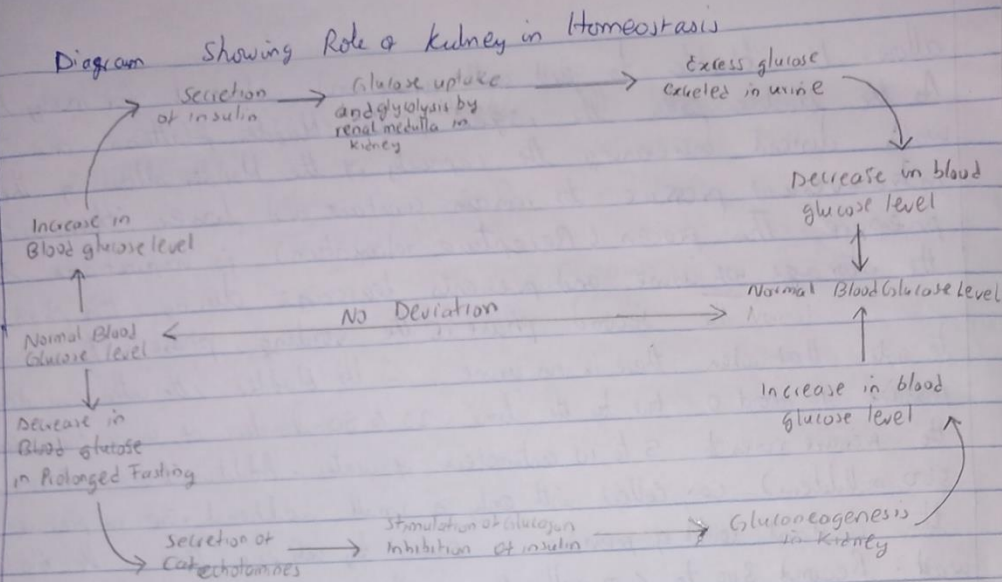 Diagram Showing Role of Kidney in Homeostasis
Secretion
of insulin
Glucose uptake
and glycolysis by
renal medulla in
kidney
Excess glucose
in urine
Decrease in blood
glucose level
Increase in
Blood glucose level
Normal Blood Glucose Level
No Deviation
Normal Blood
Glucose level
Increase in blood
glucose level
Decrease in
Blood glucose
in Prolonged Fasting
Secretion of
Catecholamines
Stimulation of Glucagon
Inhibition of insulin
Gluconeogenesis
in Kidney